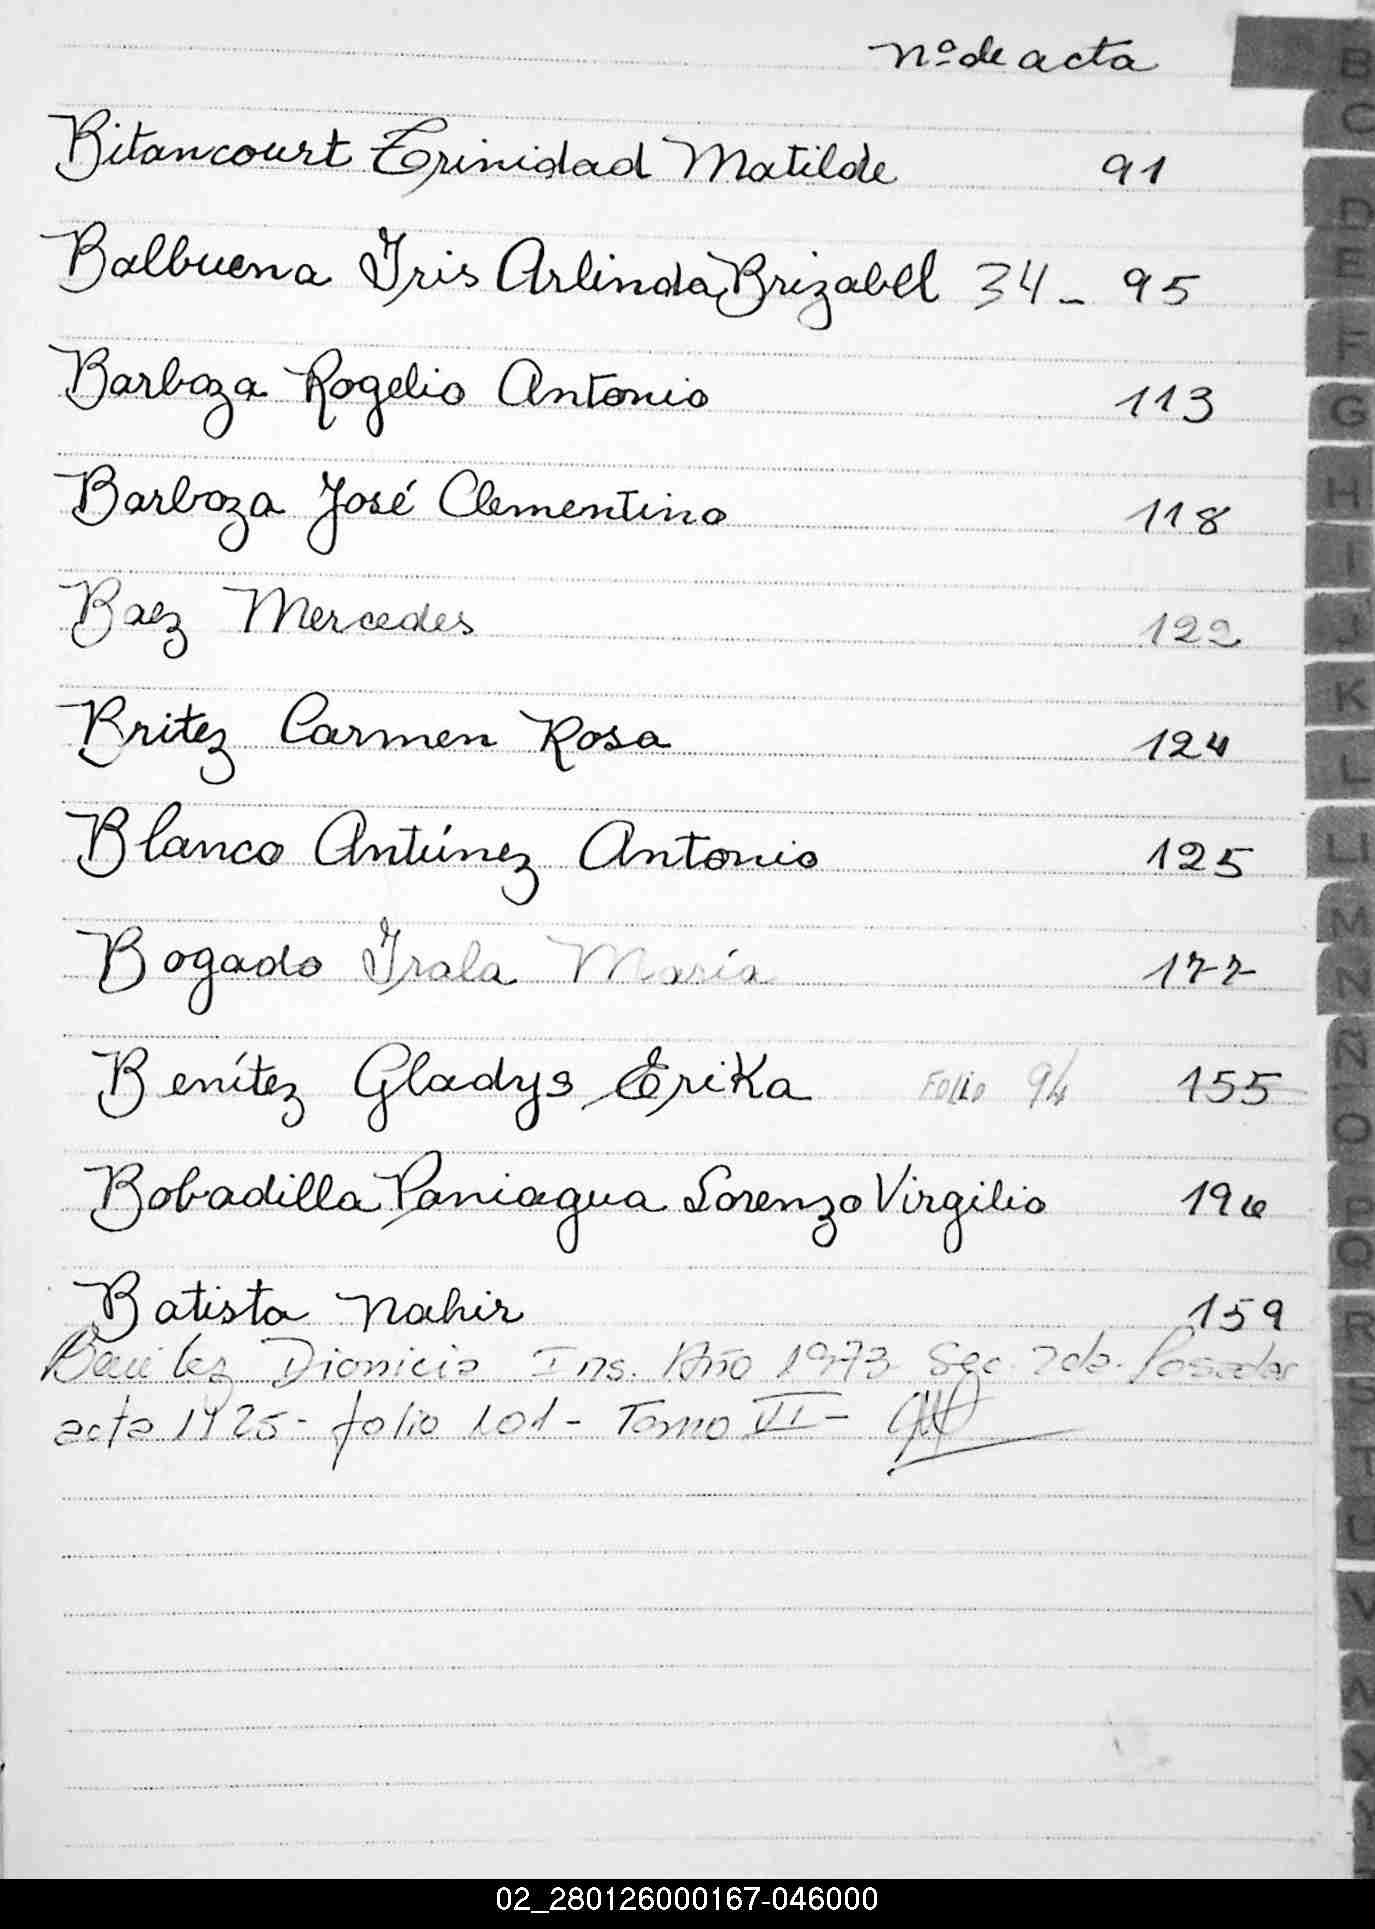 nº de acta
Bitancourt Trinidad Matilde 91
Balbuena Iris Arlinda Brizabel 34 - 95
Barboza Rogelio Antonio 113
Barboza José Clementino 118
Baez Mercedes 122
Britez Carmen Rosa 124
Blanco Antúnez Antonio 125
Bogado Irala María 177
Benítez Gladys Erika Folio 94 155
Bobadilla Paniagua Lorenzo Virgilio 196
Batista Nahir 159
Benitez Dionicia Ins. Año 1973 Sec. 2da. Posadas
acta 1925 - folio 101 - Tomo VI -
B
C
D
E
F
G
H
I
J
K
L
Ll
M
N
Ñ
O
P
Q
R
S
T
U
V
W
X
Y
02_280126000167-046000